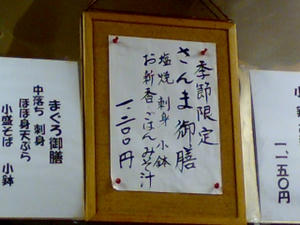 季節限定
さんま御膳
塩焼 刺身 小鉢
お新香 ごはん みそ汁
一、二〇〇円
まぐろ御膳
中落ち 刺身
ほほ身天ぷら
小盛そば 小鉢
一、一五〇円